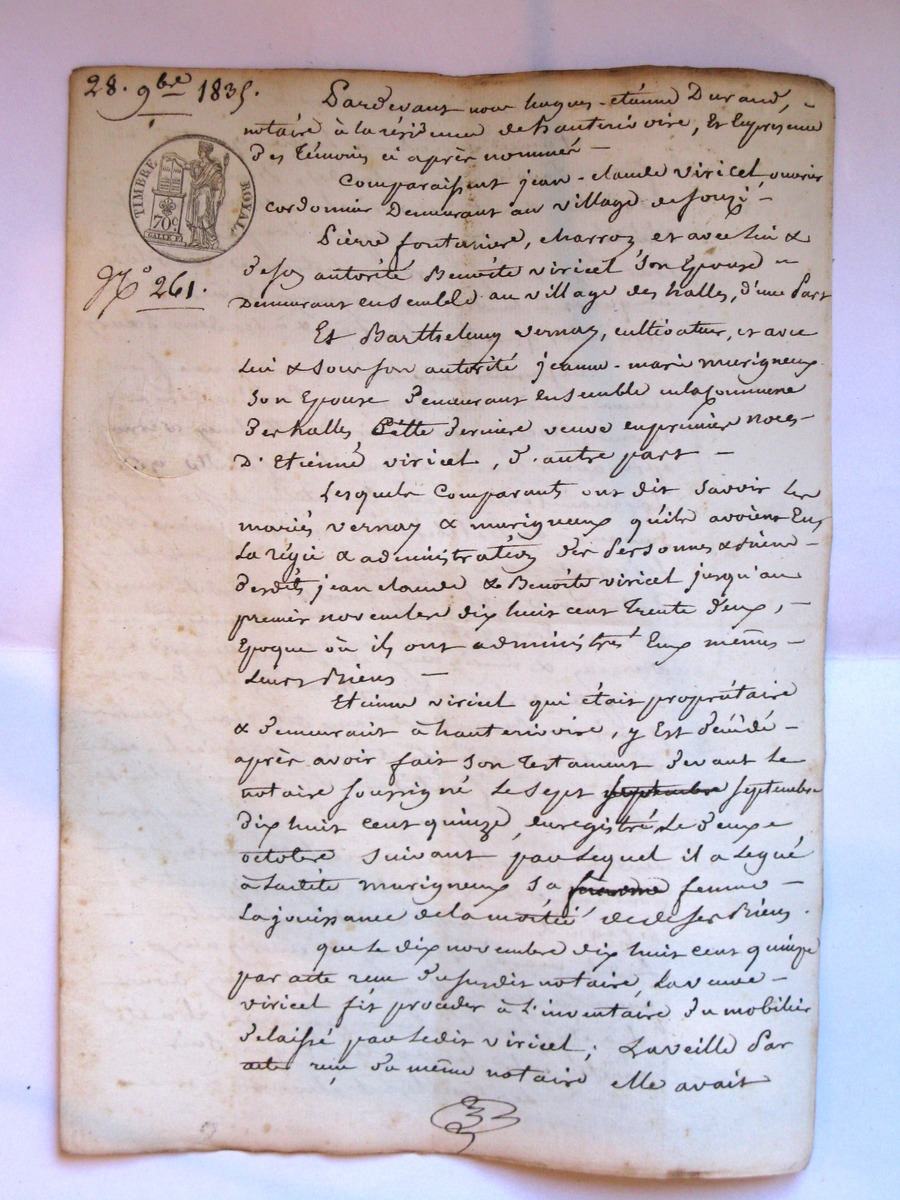 28. 9bre 1835.
TIMBRE ROYAL
70 c
N° 261.
Pardevant nous hugues-etienne Durand,
notaire à la résidence de hauterivoire, Et En présence
des témoins ci après nommés –
Comparaissent jean-claude viricel, ouvrier
cordonnier Demeurant au village de souzi –
Pierre fontaniere, charron et avec lui &
de son autorité Benoîte viricel son Epouse
Demeurant ensemble au village des halles, d'une Part
Et Barthelemy vernay, cultivateur, et avec
lui & sous son autorité jeanne-marie murigneux
son Epouse demeurant ensemble en la Commune
des halles Cette derniere veuve en premier noces
D'Etienne viricel, d'autre part –
Lesquels Comparants ont dit savoir les
mariés vernay & murigneux qu'ils avoient Eu
La régie & administration des Personnes & Biens
desdits jean claude & Benoîte viricel jusqu'au
premier novembre dix huit cent trente deux, –
Epoque où ils ont administré Eux mêmes –
Leurs Biens –
Etienne viricel qui était propriétaire
& demeurait à hauterivoire, y Est décédé –
après avoir fait son testament devant le
notaire soussigné Le sept septembre septembre
dix huit cent quinze, enregistré Le deux
octobre suivant par Lequel il a Légué
à Ladite murigneux sa femme –
La jouissance de la moitié de de ses Biens.
que le dix novembre dix huit cent quinze
par acte reçu dususdit notaire, La veuve –
viricel fit procéder à L'inventaire du mobilier
délaissé par Ledit viricel; La veille Par
acte reçu du même notaire elle avait